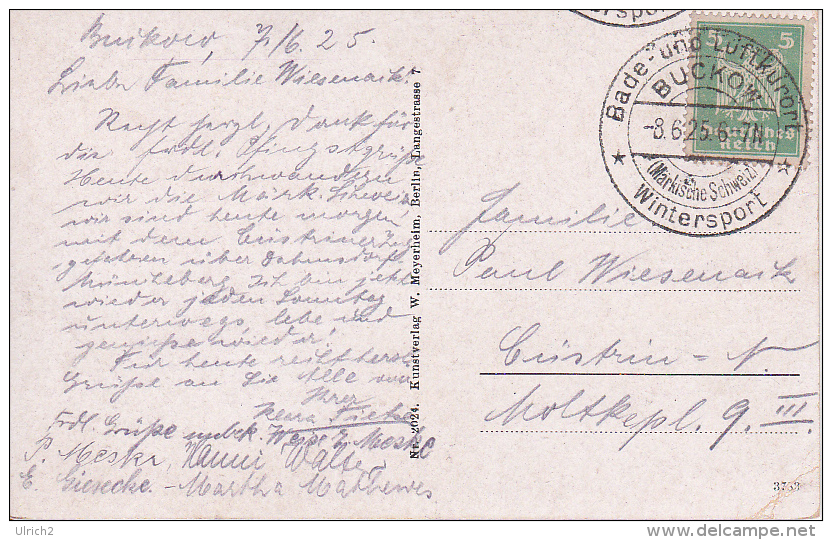 Buckow, 7/6.25.
Liebe Familie Wiesenack!
Recht herzl. Dank für
die frdl. Pfingstgrüße
Heute durchwandern
wir die Märk. Schweiz
wir sind heute morgen
mit dem Cüstriner Zug
gefahren über Dahmsdorf
Müncheberg. Ich bin jetzt
wieder jeden Sonntag
unterwegs, lebe und
genieße wieder!
Für heute recht herzl.
Grüße an Sie Alle von
Ihrer
Frdl. Grüße unbek.
Hanni Walter
E. Giesecke. - Martha Mathewes
Nr. 2024. Kunstverlag W. Meyerheim, Berlin, Langestrasse 7
Wintersport
5 5
Deutsches
Reich
Bade- und Luftkurort
BUCKOW
-8.6.25.6-7N
(Märkische Schweiz)
★ Wintersport ★
Familie
Paul Wiesenack
Cüstrin = N.
Moltkepl. 9. III.
3733
Ulrich2
delcampe.net